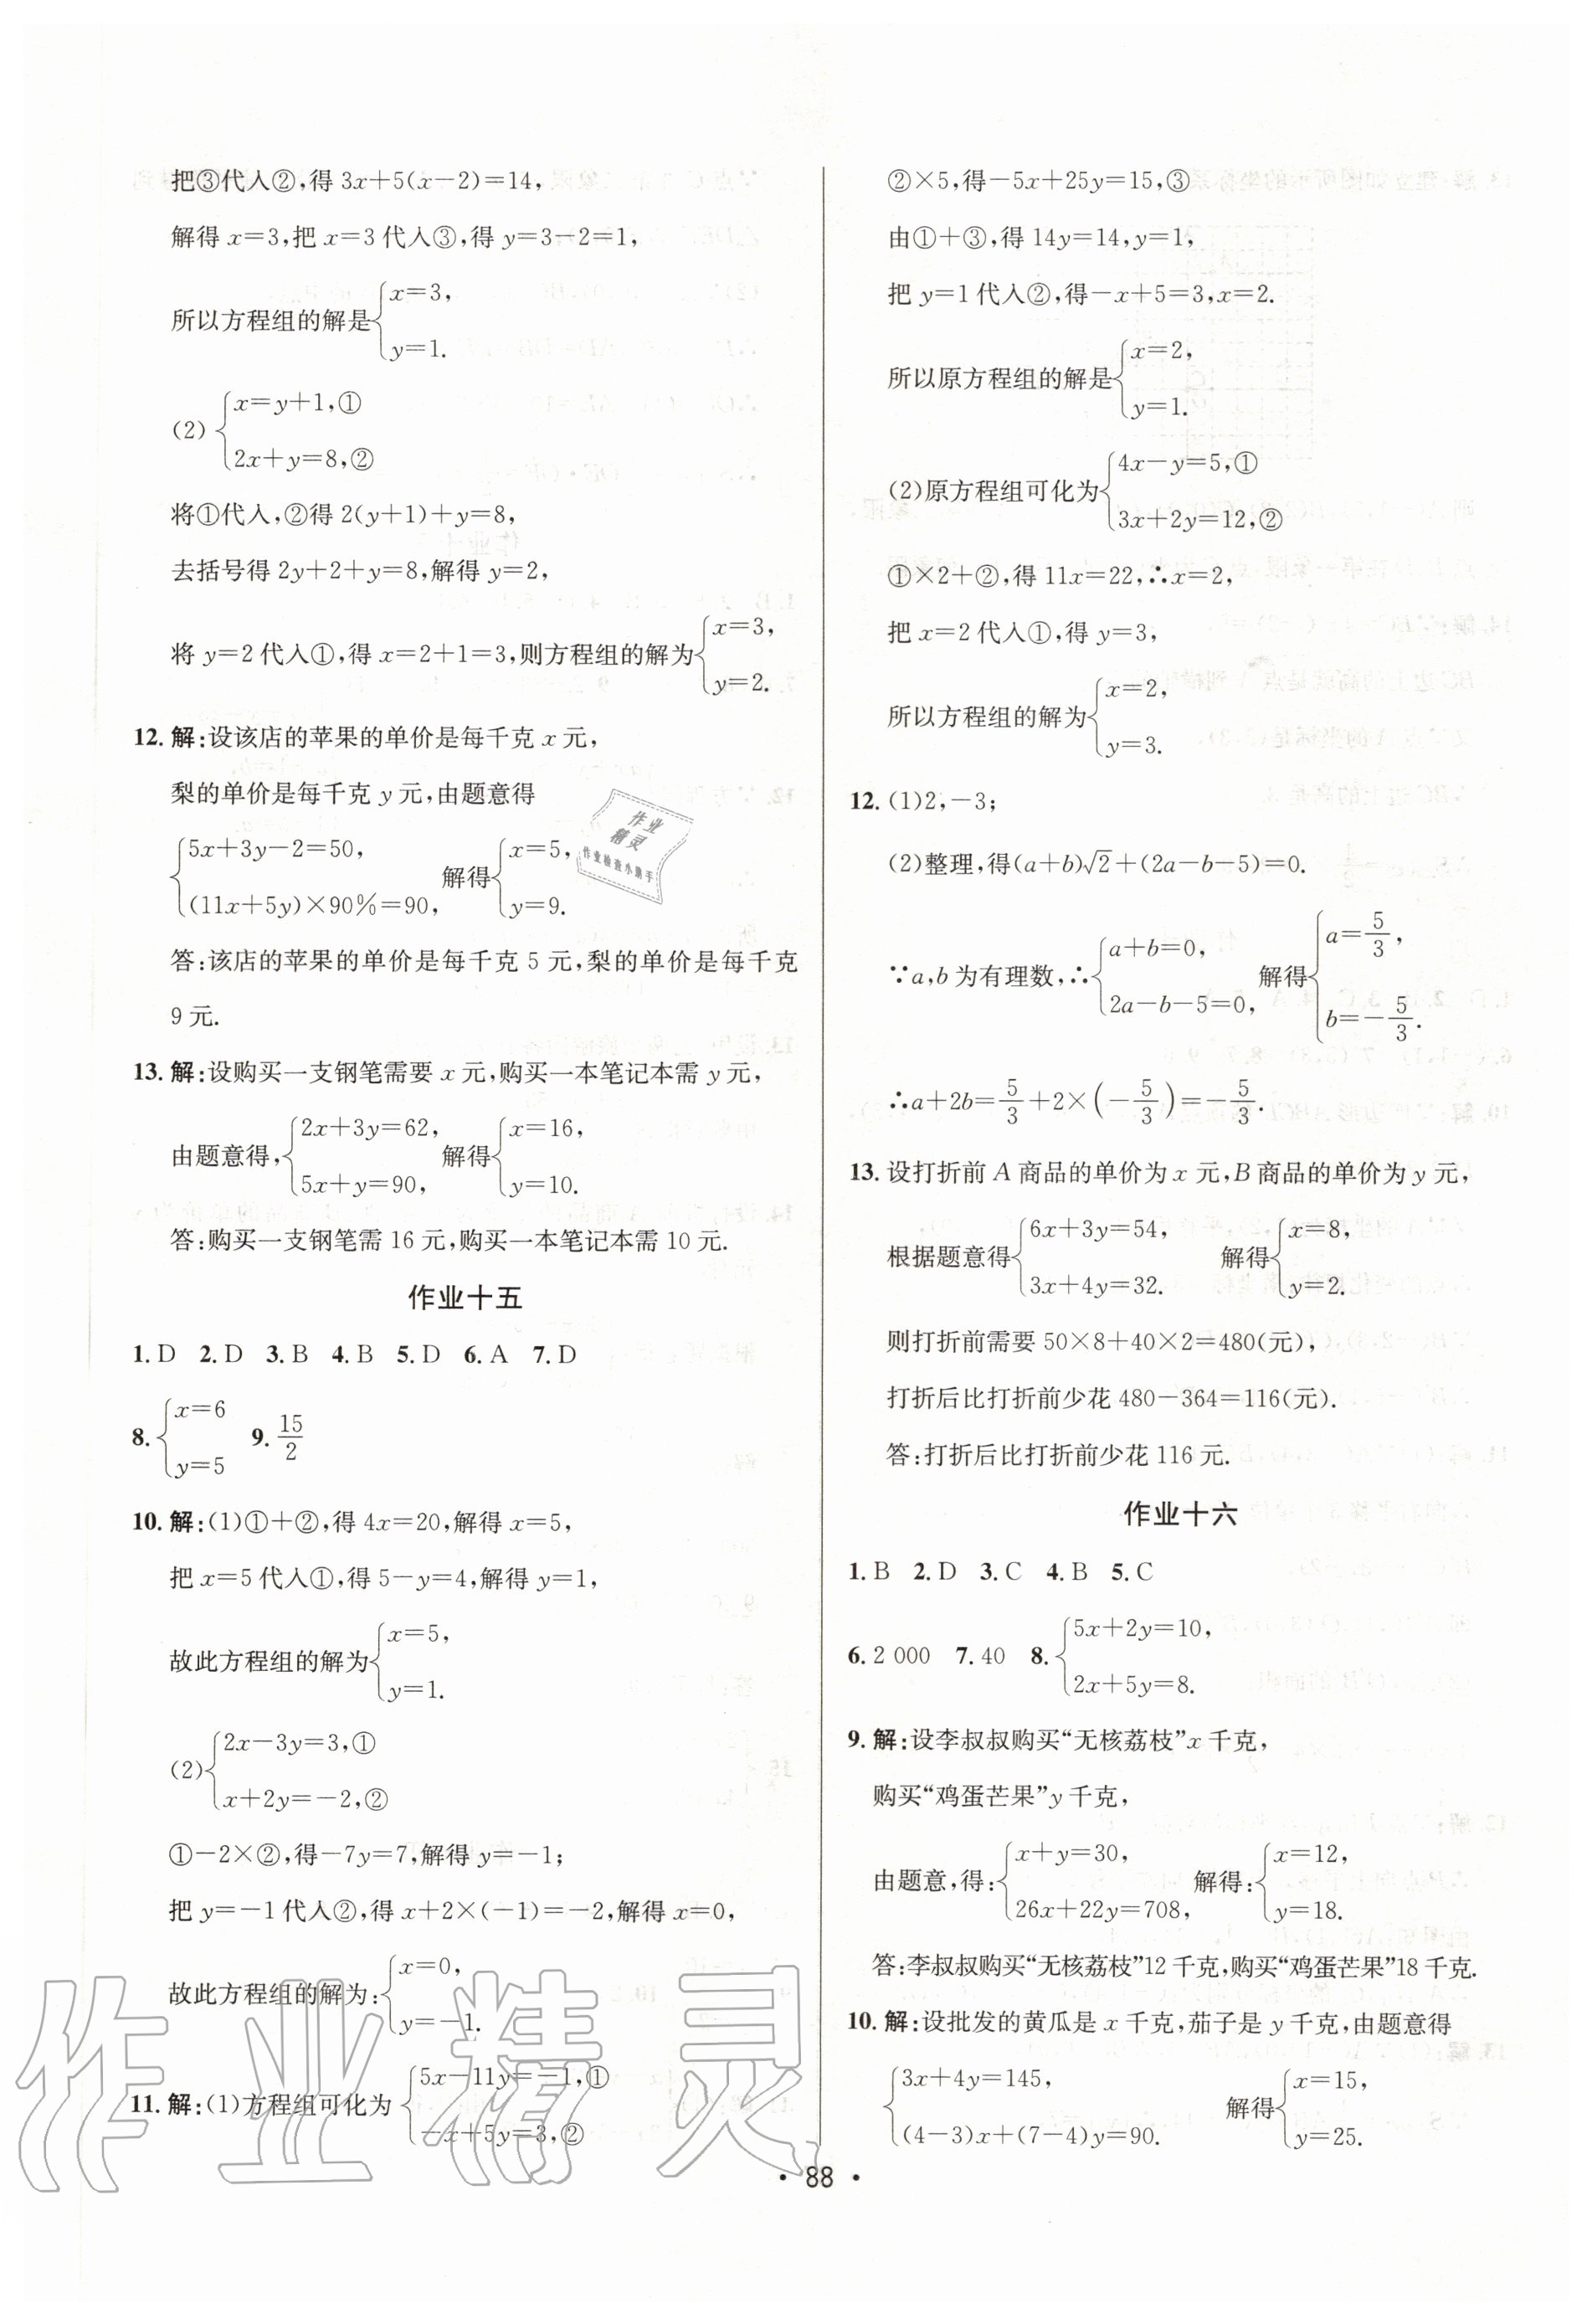 把③代入②,得 3x+5(x-2)=14,
解得 x=3,把 x=3 代入③,得 y=3-2=1,
所以方程组的解是{x=3,
y=1.
(2){x=y+1,①
2x+y=8,②
将①代入,②得 2(y+1)+y=8,
去括号得 2y+2+y=8,解得 y=2,
将 y=2 代入①,得 x=2+1=3,则方程组的解为{x=3,
y=2.
12.解:设该店的苹果的单价是每千克 x 元,
梨的单价是每千克 y 元,由题意得
{5x+3y-2=50,
(11x+5y)×90%=90,
解得{x=5,
y=9.
答:该店的苹果的单价是每千克 5 元,梨的单价是每千克
9 元.
13.解:设购买一支钢笔需要 x 元,购买一本笔记本需 y 元,
由题意得,{2x+3y=62,
5x+y=90,
解得{x=16,
y=10.
答:购买一支钢笔需 16 元,购买一本笔记本需 10 元.
作业十五
1.D 2.D 3.B 4.B 5.D 6.A 7.D
8.{x=6
y=5
9.15/2
10.解:(1)①+②,得 4x=20,解得 x=5,
把 x=5 代入①,得 5-y=4,解得 y=1,
故此方程组的解为{x=5,
y=1.
(2){2x-3y=3,①
x+2y=-2,②
①-2×②,得-7y=7,解得 y=-1;
把 y=-1 代入②,得 x+2×(-1)=-2,解得 x=0,
故此方程组的解为:{x=0,
y=-1.
11.解:(1)方程组可化为{5x-11y=-1,①
-x+5y=3,②
②×5,得-5x+25y=15,③
由①+③,得 14y=14,y=1,
把 y=1 代入②,得-x+5=3,x=2.
所以原方程组的解是{x=2,
y=1.
(2)原方程组可化为{4x-y=5,①
3x+2y=12,②
①×2+②,得 11x=22,∴x=2,
把 x=2 代入①,得 y=3,
所以方程组的解为{x=2,
y=3.
12.(1)2,-3;
(2)整理,得(a+b)√2+(2a-b-5)=0.
∵a,b 为有理数,∴{a+b=0,
2a-b-5=0,
解得{a=5/3,
b=-5/3.
∴a+2b=5/3+2×(-5/3)=-5/3.
13.设打折前 A 商品的单价为 x 元,B 商品的单价为 y 元,
根据题意得{6x+3y=54,
3x+4y=32.
解得{x=8,
y=2.
则打折前需要 50×8+40×2=480(元),
打折后比打折前少花 480-364=116(元).
答:打折后比打折前少花 116 元.
作业十六
1.B 2.D 3.C 4.B 5.C
6.2 000 7.40 8.{5x+2y=10,
2x+5y=8.
9.解:设李叔叔购买“无核荔枝”x 千克,
购买“鸡蛋芒果”y 千克,
由题意,得:{x+y=30,
26x+22y=708,
解得:{x=12,
y=18.
答:李叔叔购买“无核荔枝”12 千克,购买“鸡蛋芒果”18 千克.
10.解:设批发的黄瓜是 x 千克,茄子是 y 千克,由题意得
{3x+4y=145,
(4-3)x+(7-4)y=90.
解得{x=15,
y=25.
· 88 ·
作业
精灵
作业检查小助手
作业精灵